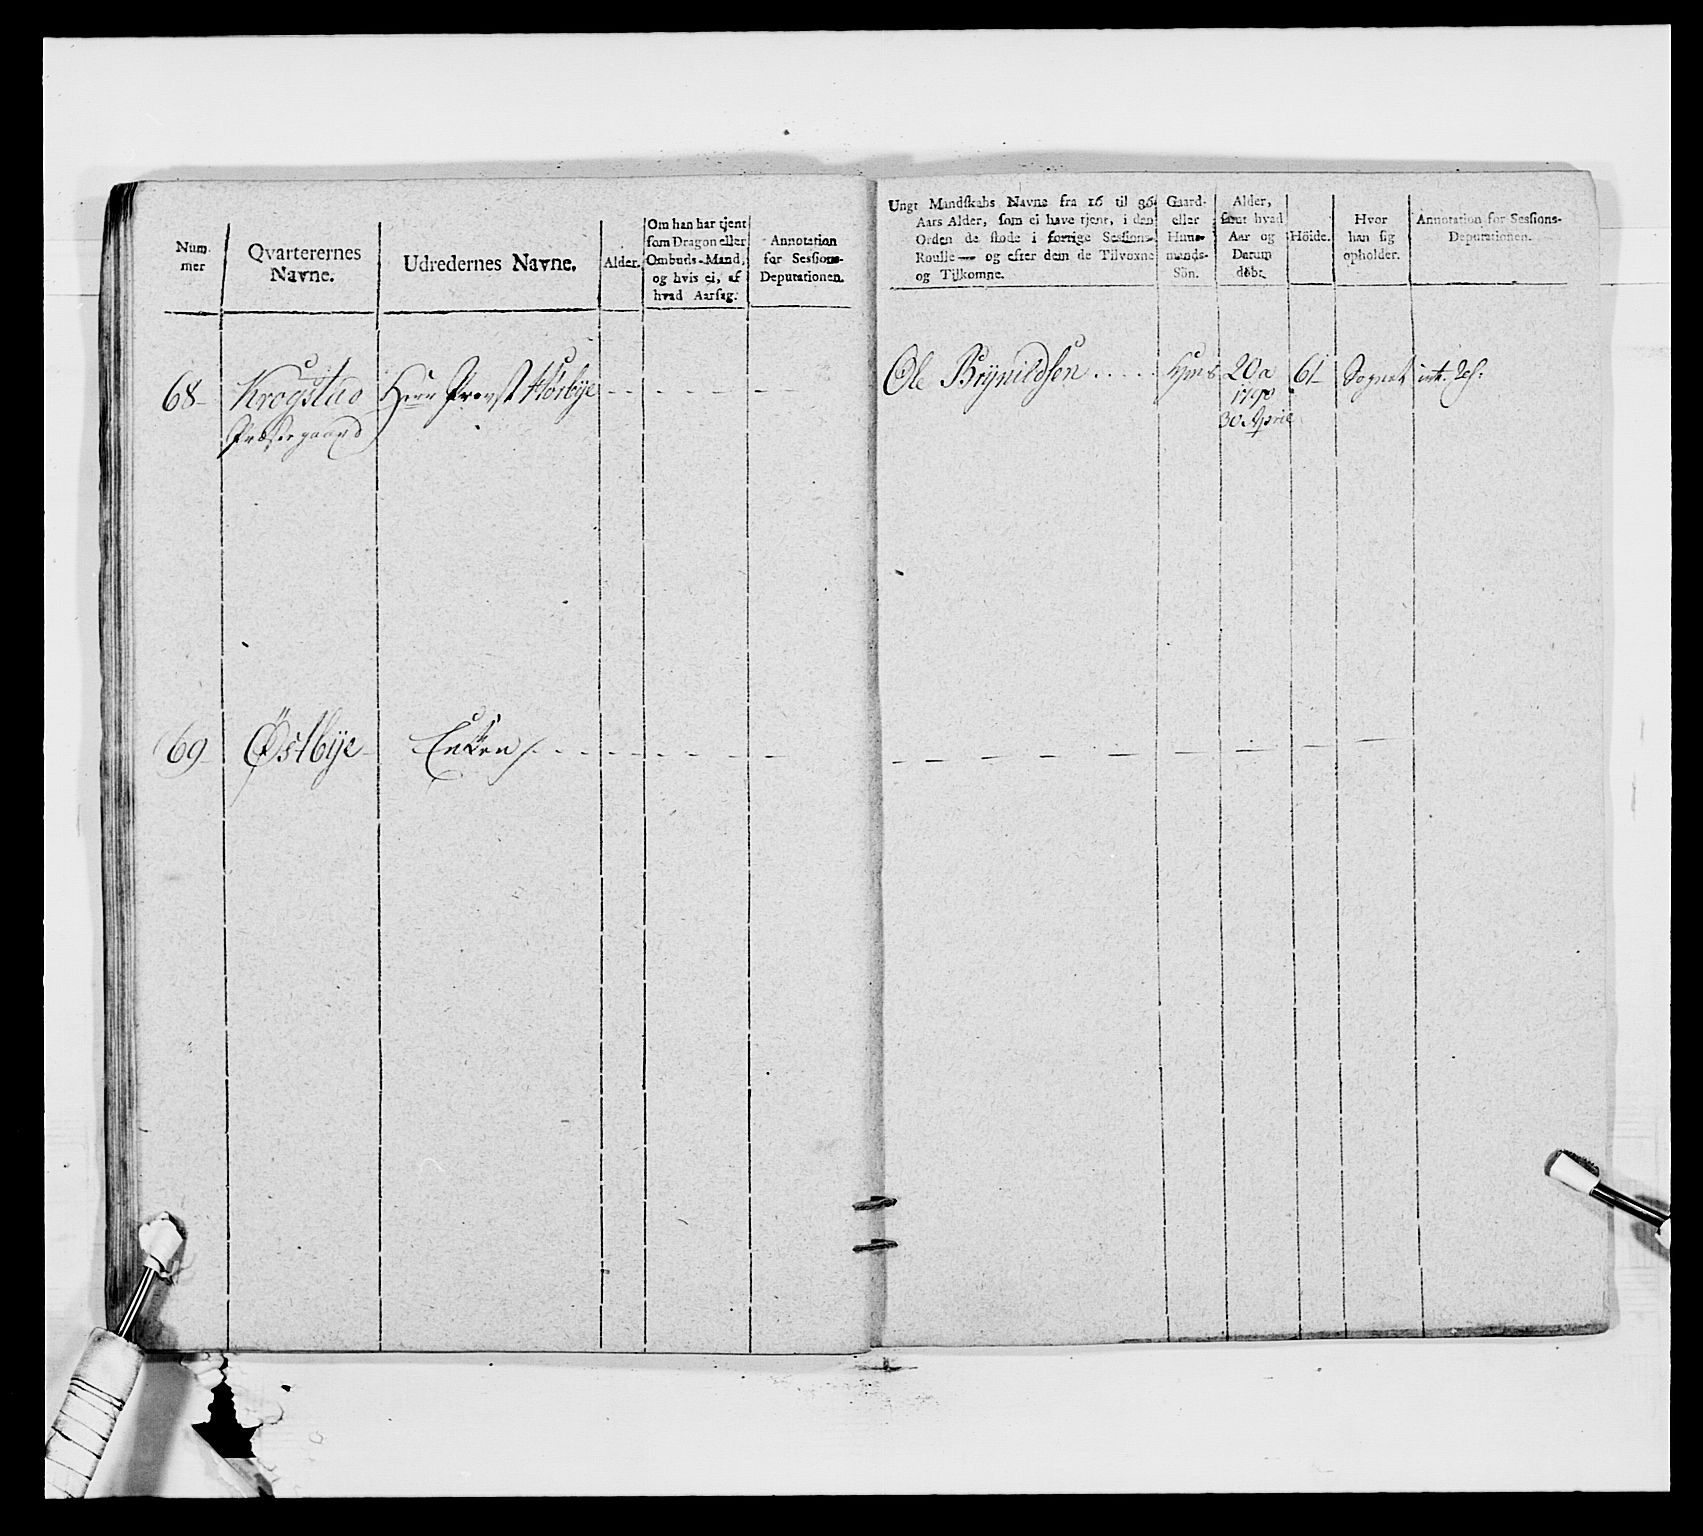 Num-
mer
Qvarterernes
Navne.
Udredernes Navne.
Alder.
Om han har tjent
som Dragon eller
Ombuds-Mand,
og hvis ei, af
hvad Aarsag.
Annotation
for Sessions-
Deputationen.
Ungt Mandskabs Navne fra 16 til 36
Aars Alder, som ei have tjent, i den
Orden de stode i forrige Sessions-
Roulle — og efter dem de Tilvoxne
og Tilkomne.
Gaard-
eller
Huus-
mands-
Sön.
Alder,
samt hvad
Aar og
Datum
döbt.
Höide.
Hvor
han sig
opholder.
Annotation for Sessions-
Deputationen.
68 Krogstad Herr Provst
Præstegaard
Ole Brynildsen 20 a 61 Sognet
1790
30 April
69 Østbye Enken